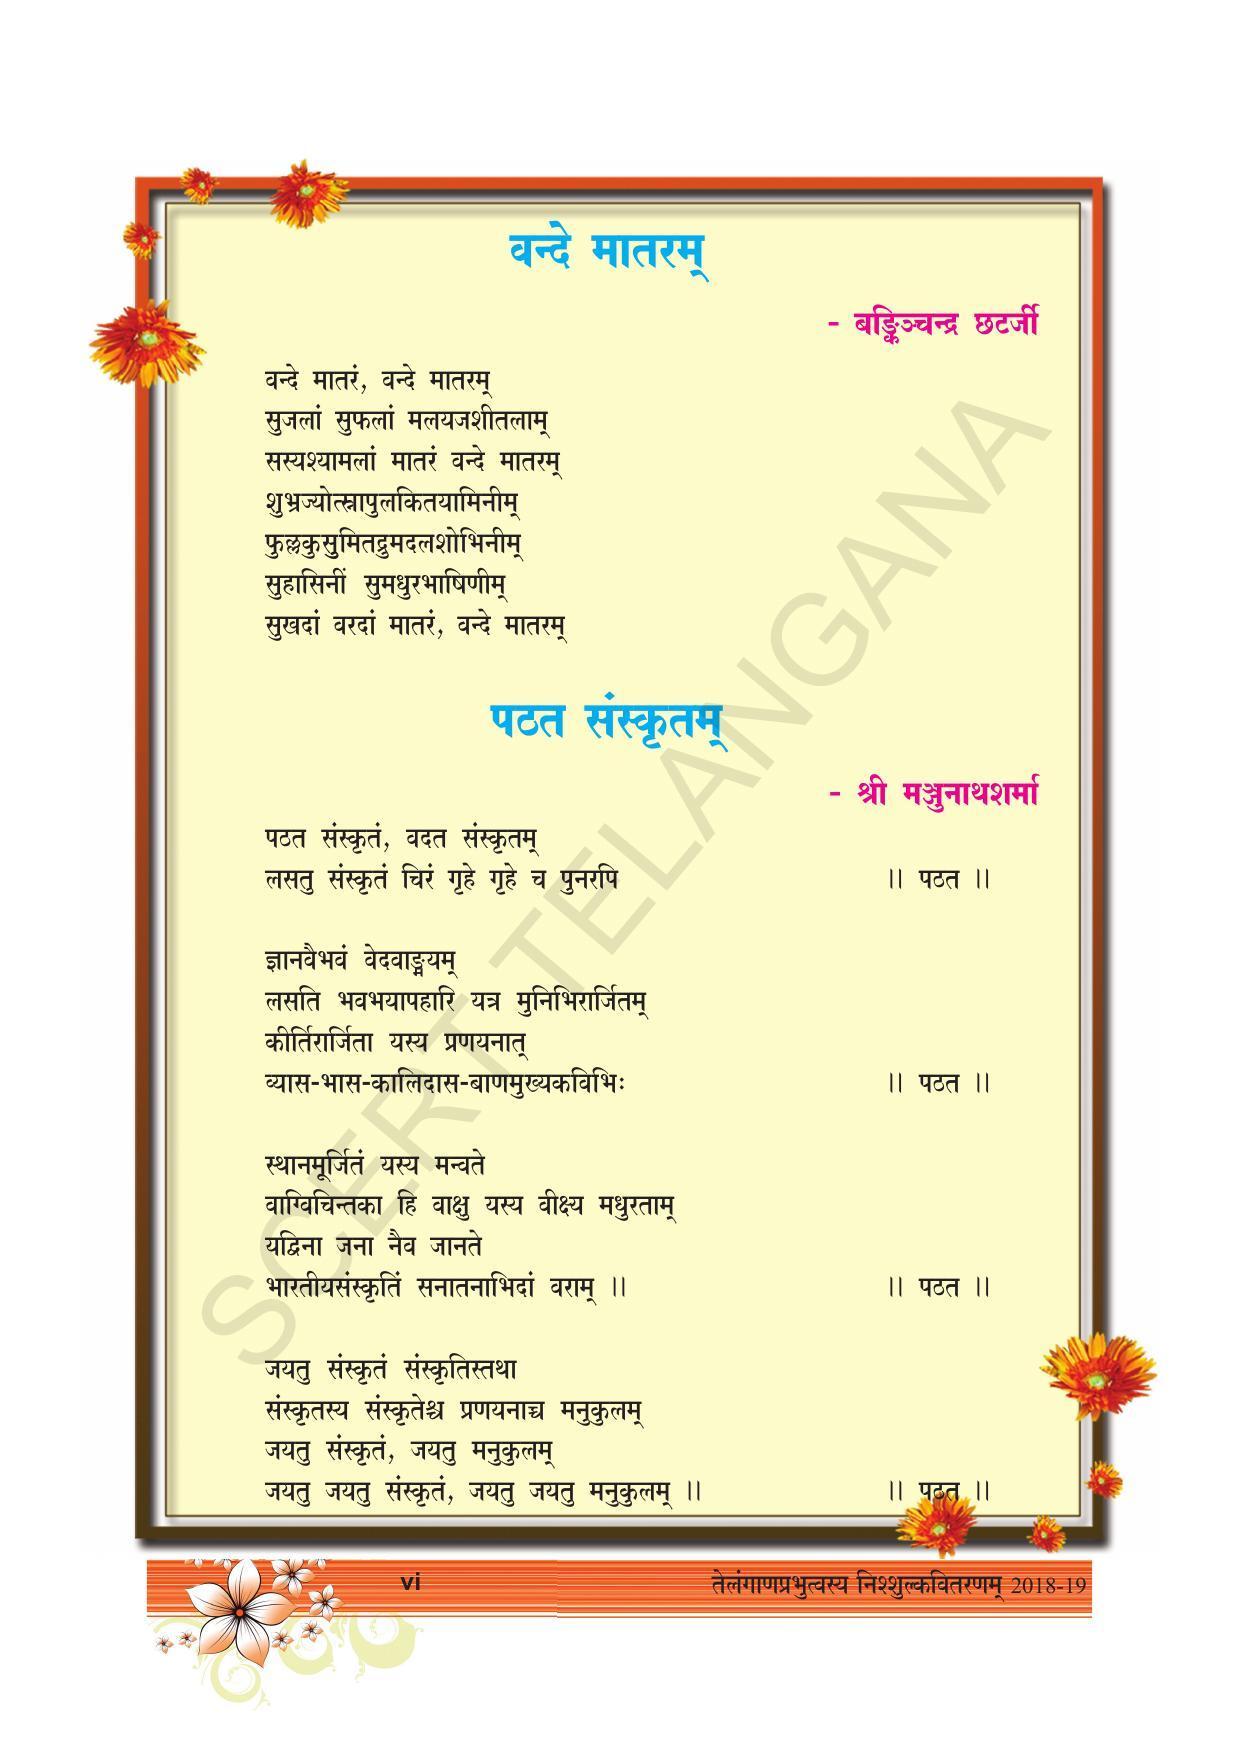 वन्दे मातरम्
- बङ्किञ्चन्द्र छटर्जी
वन्दे मातरं, वन्दे मातरम्
सुजलां सुफलां मलयजशीतलाम्
सस्यश्यामलां मातरं वन्दे मातरम्
शुभ्रज्योत्स्नापुलकितयामिनीम्
फुल्लकुसुमितद्रुमदलशोभिनीम्
सुहासिनीं सुमधुरभाषिणीम्
सुखदां वरदां मातरं, वन्दे मातरम्
पठत संस्कृतम्
- श्री मञ्जुनाथशर्मा
पठत संस्कृतं, वदत संस्कृतम्
लसतु संस्कृतं चिरं गृहे गृहे च पुनरपि ।। पठत ।।
ज्ञानवैभवं वेदवाङ्मयम्
लसति भवभयापहारि यत्र मुनिभिरार्जितम्
कीर्तिरार्जिता यस्य प्रणयनात्
व्यास-भास-कालिदास-बाणमुख्यकविभिः ।। पठत ।।
स्थानमूर्जितं यस्य मन्वते
वाग्विचिन्तका हि वाक्षु यस्य वीक्ष्य मधुरताम्
यद्विना जना नैव जानते
भारतीयसंस्कृतिं सनातनाभिदां वराम् ।। ।। पठत ।।
जयतु संस्कृतं संस्कृतिस्तथा
संस्कृतस्य संस्कृतेश्च प्रणयनाच्च मनुकुलम्
जयतु संस्कृतं, जयतु मनुकुलम्
जयतु जयतु संस्कृतं, जयतु जयतु मनुकुलम् ।। ।। पठत ।।
SCERT TELANGANA
vi तेलंगाणप्रभुत्वस्य निश्शुल्कवितरणम् 2018-19